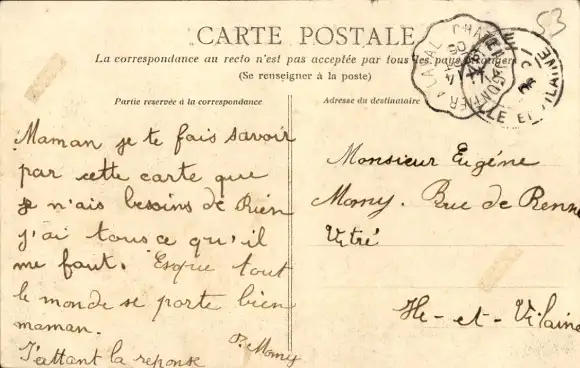 53
CARTE POSTALE
La correspondance au recto n'est pas acceptée par tous les pays étrangers
(Se renseigner à la poste)
Partie réservée à la correspondance
Maman je te fais savoir
par cette carte que
je n'ais besoins de Rien
j'ai tous ce qu'il
me faut. Esque tout
le monde se porte bien
maman.
J'attant la reponse
P. Mony
Adresse du destinataire
Monsieur Eugéne
Mony. Rue de Renne
Vitré
Ille-et-Vilaine